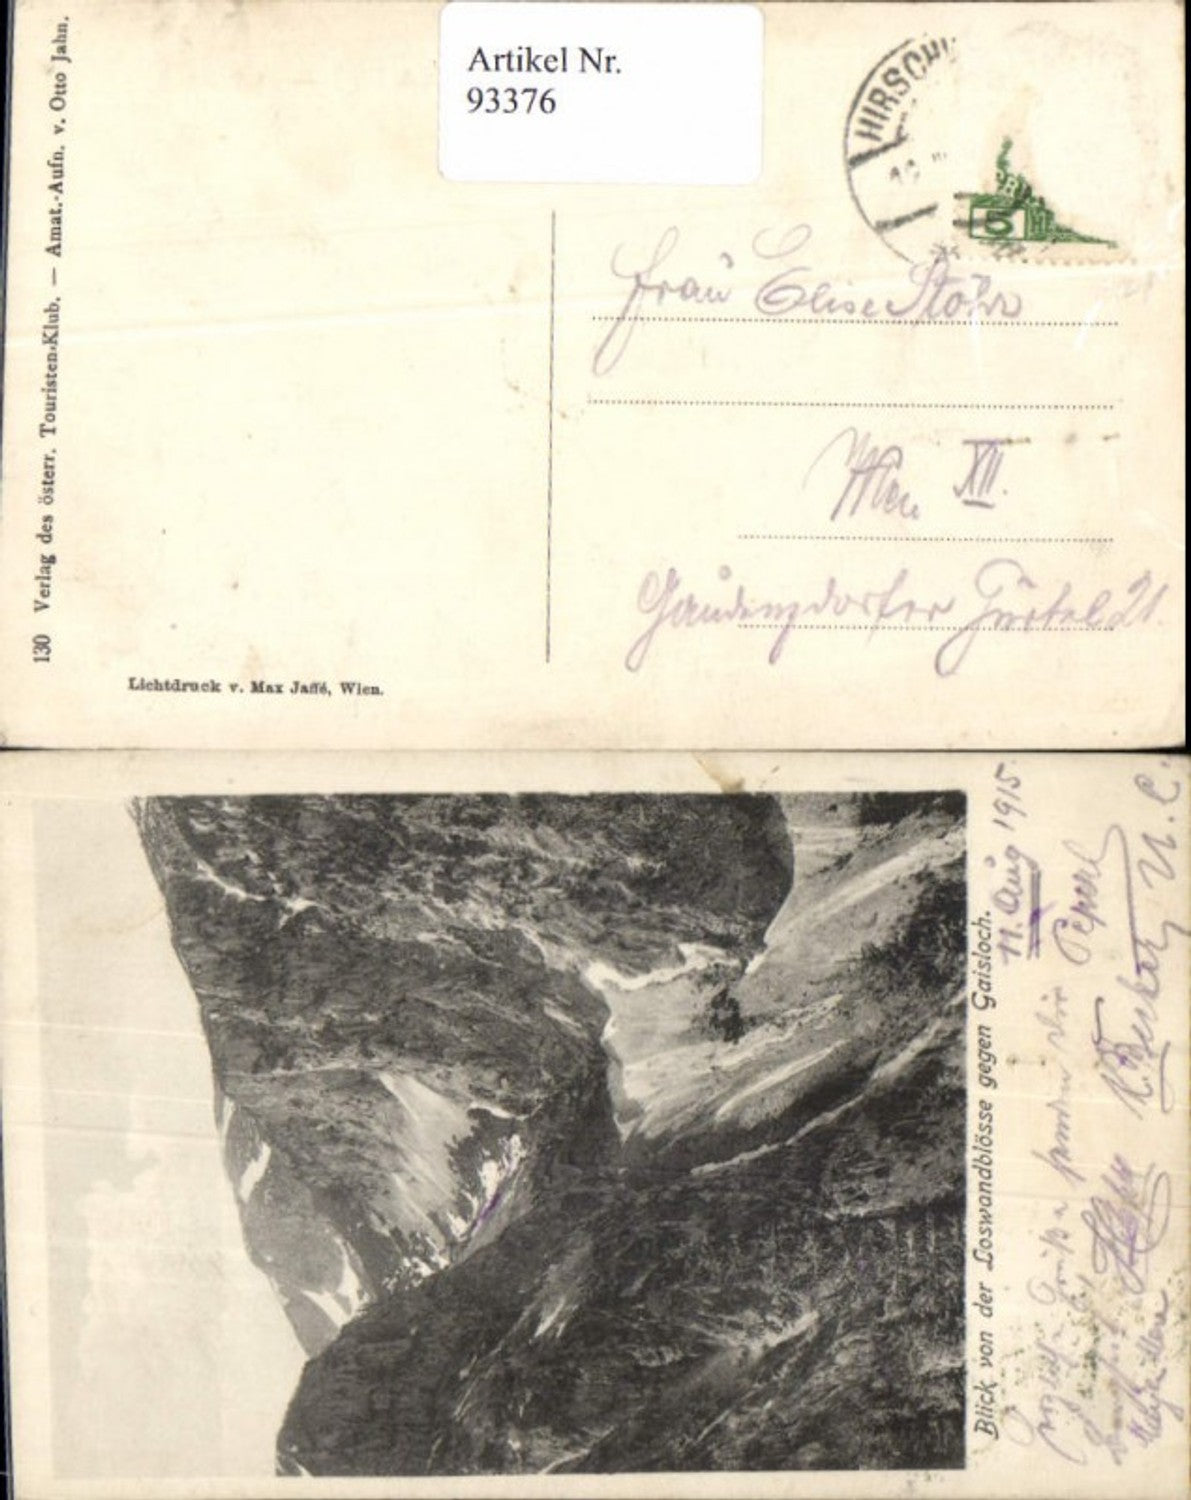 Artikel Nr.
93376
HIRSCH
5
130 Verlag des österr. Touristen-Klub. — Amat.-Aufn. v. Otto Jahn.
Frau Elise Stöhr
Wien XII.
Gaudenzdorfer Gürtel 21.
Lichtdruck v. Max Jaffé, Wien.
Blick von der Loswandblösse gegen Gaisloch.
11. Aug 1915
Grüße senden dir Peperl